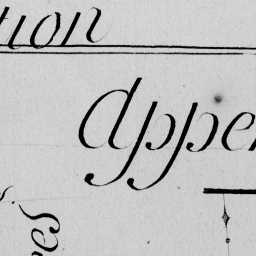 tion
appe
es